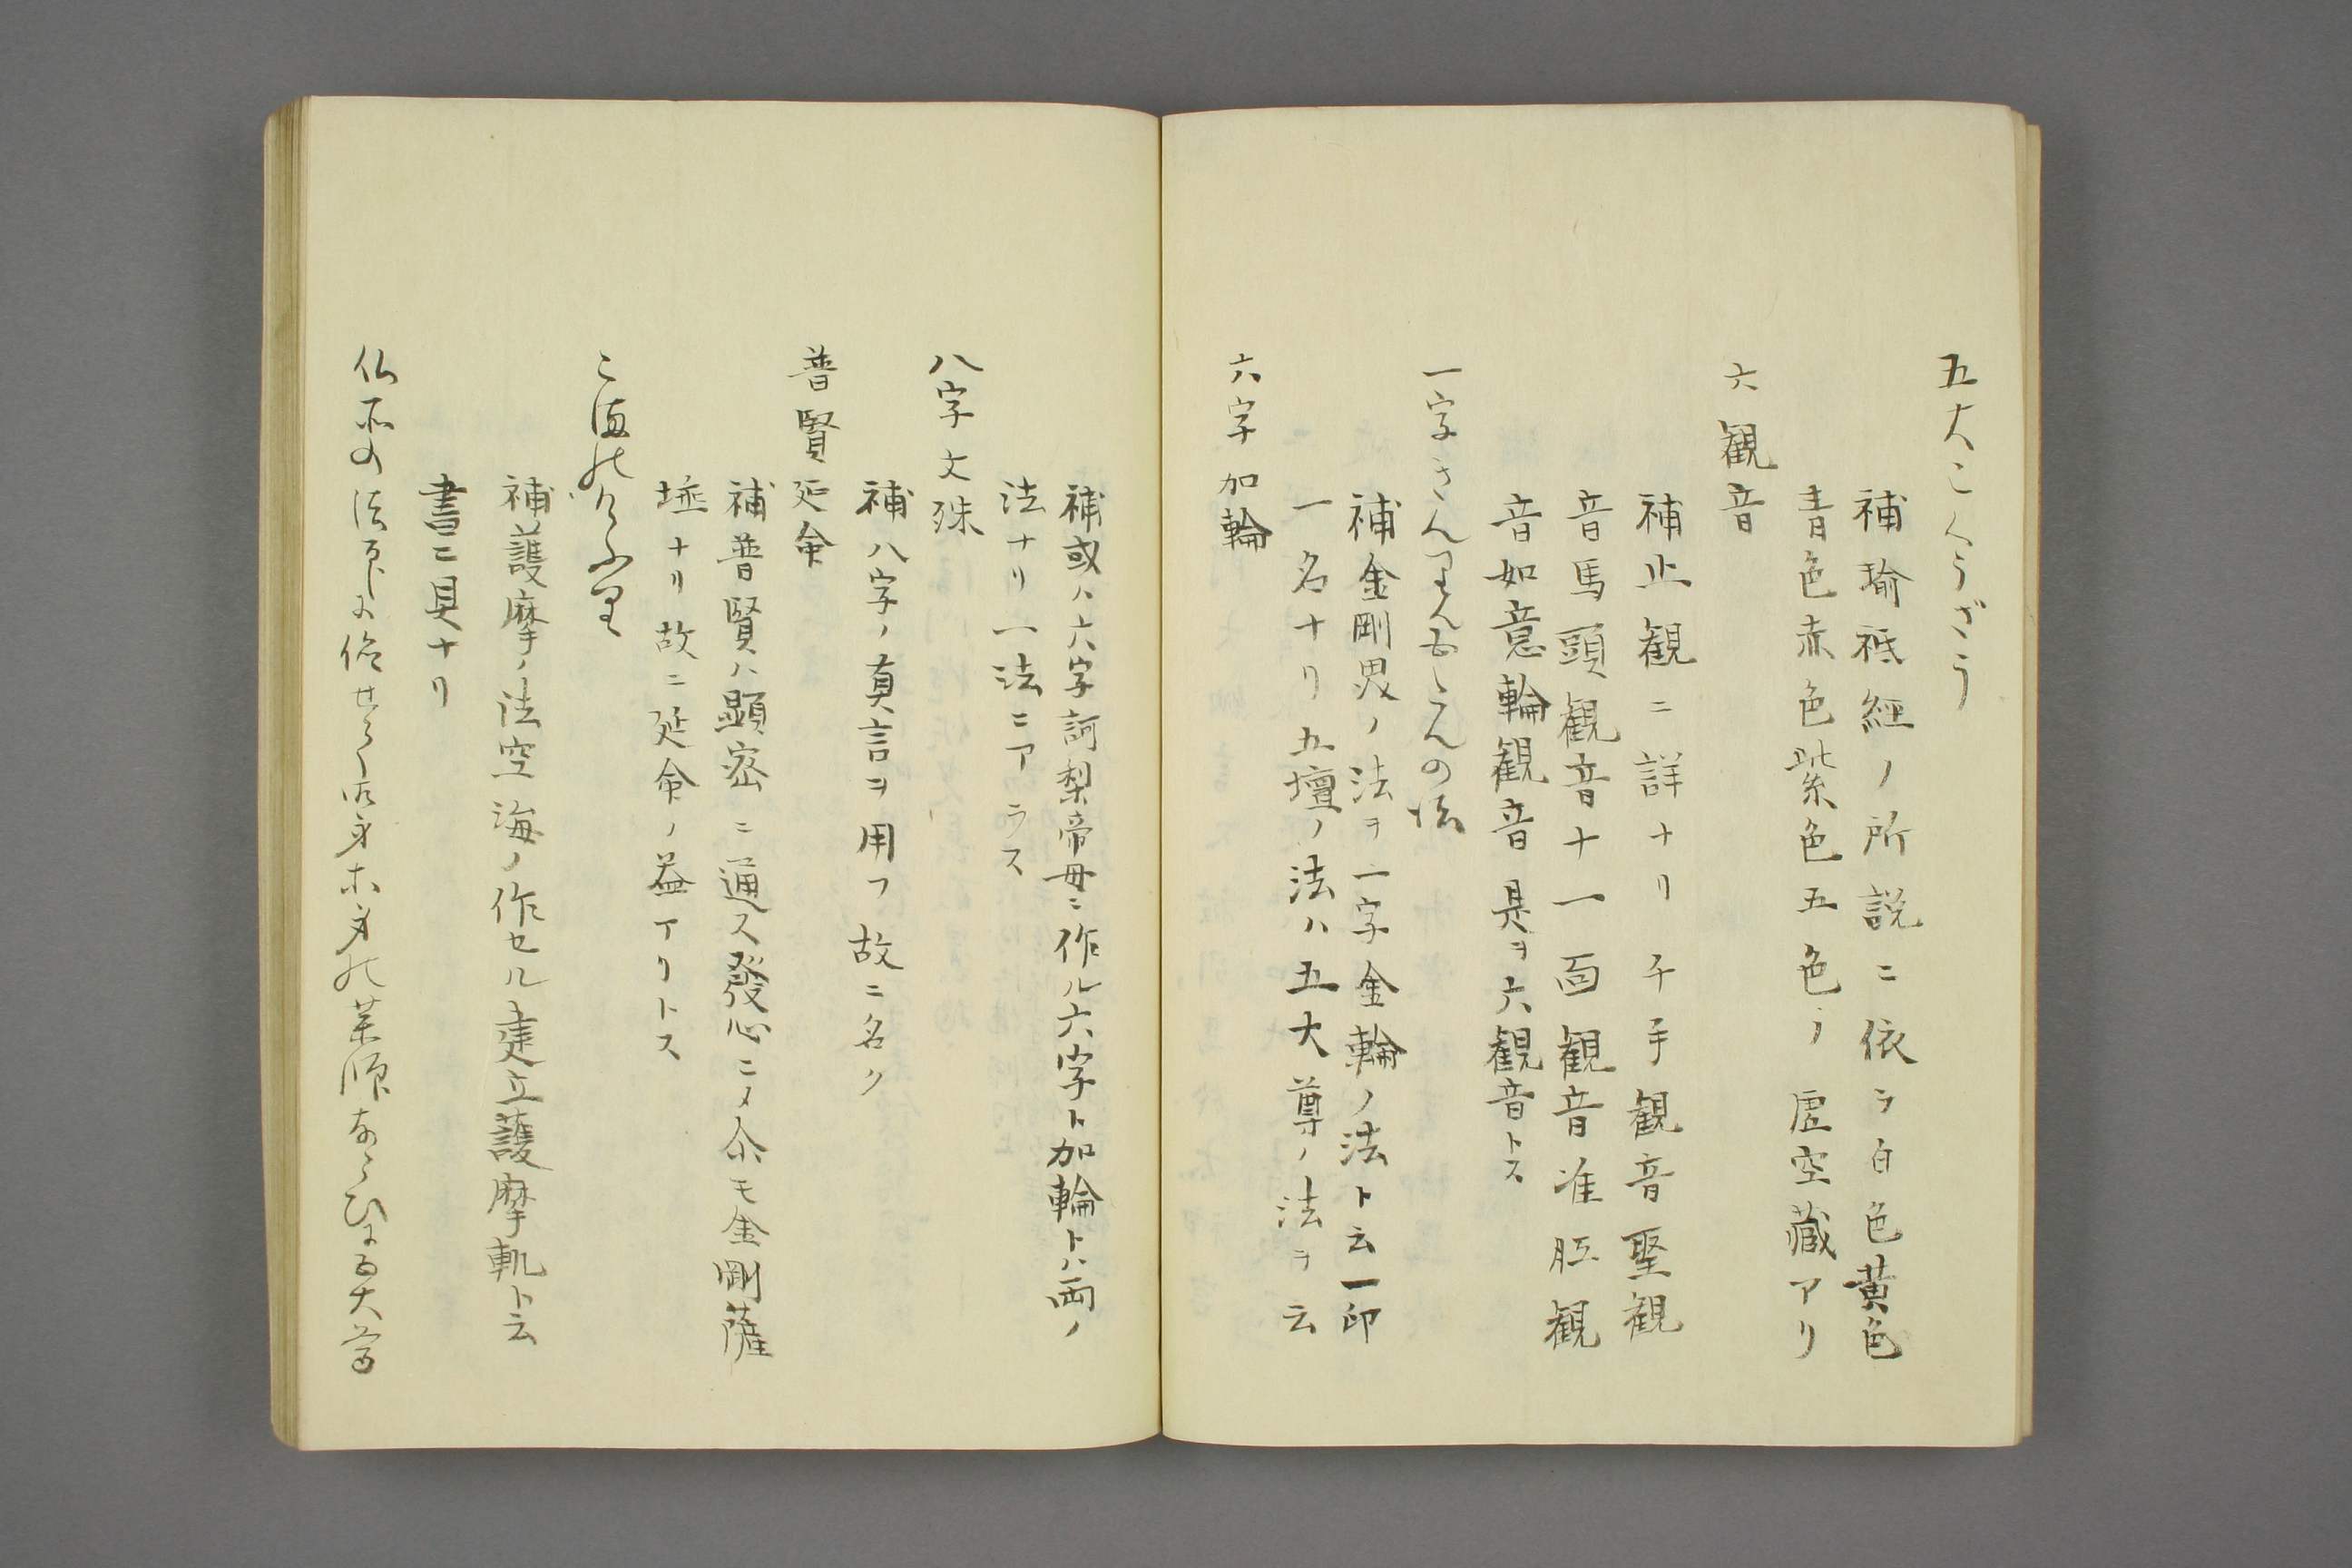 五大こくうざう
補瑜祇経ノ所説ニ依ラ白色黄色
青色赤色紫色五色ノ虚空蔵アリ
六観音
補止観ニ詳ナリ千手観音聖観
音馬頭観音十一面観音准胝観
音如意輪観音是ヲ六観音トス
一字きんりん五たんの法
補金剛界ノ法ヲ一字金輪ノ法ト云一印
一名ナリ五壇ノ法ハ五大尊ノ法ヲ云
六字加輪
補或ハ六字訶梨帝母ニ作ル六字ト加輪トハ両ノ
法ナリ一法ニアラス
八字文殊
補八字ノ真言ヲ用フ故ニ名ク
普賢延命
補普賢ハ顕密ニ通ス發心ニメ尒モ金剛薩
埵ナリ故ニ延命ノ益アリトス
こまの
補護摩ノ法空海ノ作セル建立護摩軌ト云
書ニ具ナリ
仏